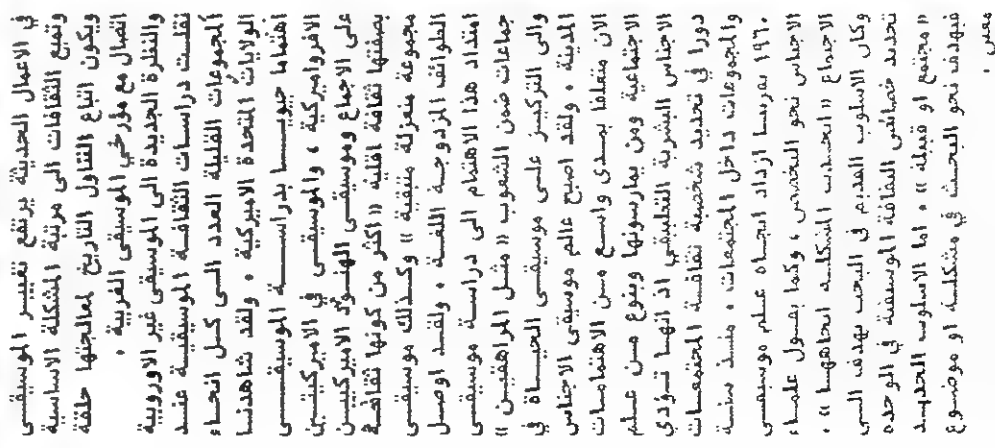 في الاعمال الحديثة يرتفع تغيير الموسيقى
وتميع الثقافات الى مرتبة المشكلة الاساسية
ويكون اتباع التناول التاريخ لمعالجتها حلقة
اتصال مع مؤرخي الموسيقى الغربية .
والنظرة الجديدة الى الموسيقى غير الاوروبية
نقلت دراسات الثقافة الموسيقية عند
المجموعات القليلة العدد الى كل انحاء
الولايات المتحدة الاميركية . ولقد شاهدنا
اهتماما حيويا بدراسة الموسيقى
الافروامبركية ، والموسيقى في الاميركيتين
على الاجماع وموسيقى الهنود الاميركيين
بصفتها ثقافة اقلية (( اكثر من كونها ثقافة
مجموعة منعزلة متبقية )) وكذلك موسيقى
الطوائف المزدوجة اللغة . ولقد اوصل
امتداد هذا الاهتمام الى دراسة موسيقى
جماعات ضمن الشعوب (( مثل المراهقين ))
والى التركيز على موسيقى الحياة في
المدينة . ولقد اصبح عالم موسيقى الاجناس
الان متعلقا بمدى واسع من الاهتمامات
الاجتماعية ومن يمارسونها وبنوع من علم
الاجناس البشرية التطبيقي اذ انها تؤدي
دورا في تحديد شخصية ثقافة المجتمعات
والمجموعات داخل المجتمعات . منذ سنة
١٩٦٠ تقريبا ازداد اتجاه علم موسيقى
الاجناس نحو التخصص ، وكما يقول علماء
الاجتماع (( اتخذت المشكلة اتجاهها )) .
وكان الاسلوب القديم في البحث يهدف الى
تحديد خصائص الثقافة الموسيقية في الوحدة
(( مجتمع او قبيلة )) . اما الاسلوب الجديد
فيهدف نحو البحث في مشكلة او موضوع
معين .